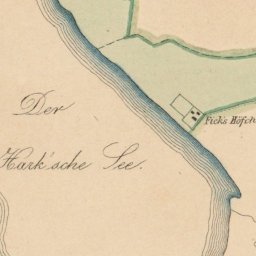 Der
Hark'sche See.
Fick's Höfch